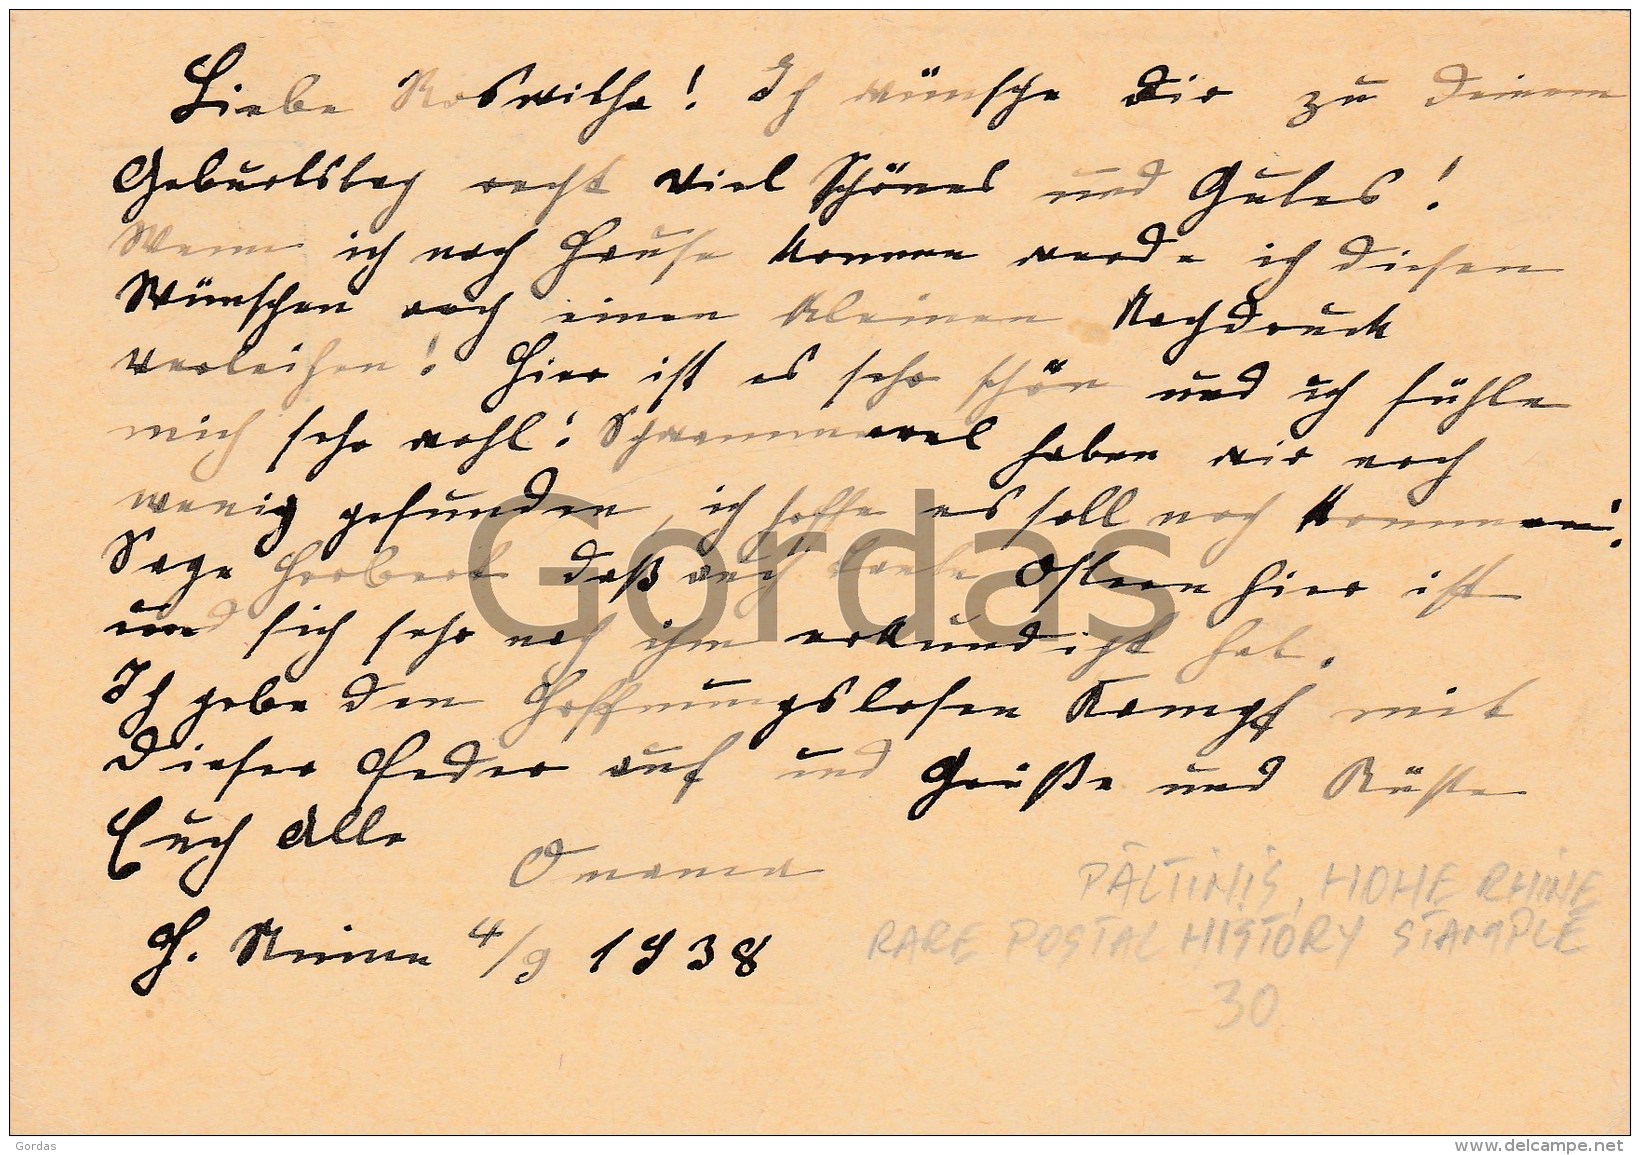 Liebe Roswitha! Ich wünsche Dir zu Deinem
Geburtstag recht viel Schönes und Gutes!
Wenn ich nach Hause komme werde ich diesen
Wünschen noch einen kleinen Nachdruck
verleihen! Hier ist es sehr schön und ich fühle
mich sehr wohl! Schwammerel haben wir noch
wenig gefunden, ich hoffe es soll noch kommen!
Sage Herbert daß auch Ostern hier ist
und sich sehr nach ihm erkundigt hat.
Ich gebe den Hoffnungslosen Kampf mit
dieser Feder auf und Grüße und Küsse
Euch Alle
Omama
H. Rinne 4/9 1938
PĂLTINIŞ, HOHE RHINE
RARE POSTAL HISTORY STAMPLE
30
Gordas
Gordas
www.delcampe.net